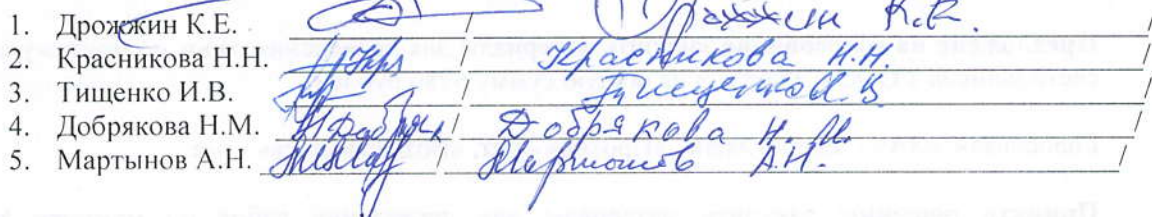 1. Дрожжин К.Е. / Дрожжин К.Е. /
2. Красникова Н.Н. Кра / Красникова Н.Н. /
3. Тищенко И.В. / Тищенко И.В. /
4. Добрякова Н.М. НДобряк / Добрякова Н.М. /
5. Мартынов А.Н. / Мартынов А.Н. /